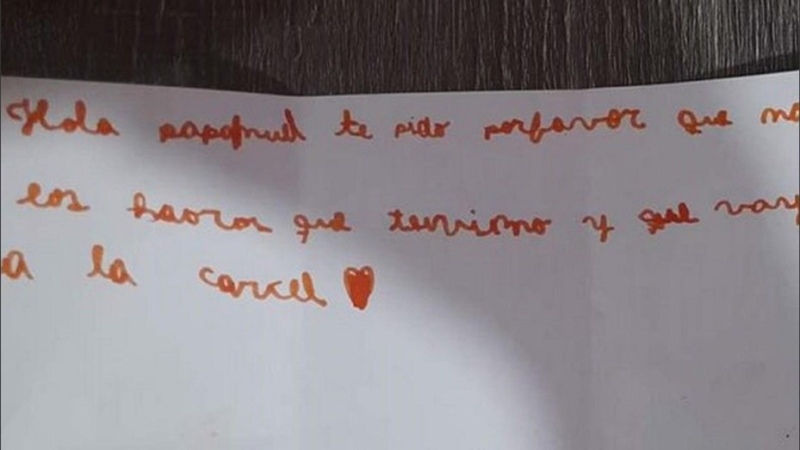 Hola papanuel te pido porfavor que no
los haoror que tenismo y que vay
a la carcel